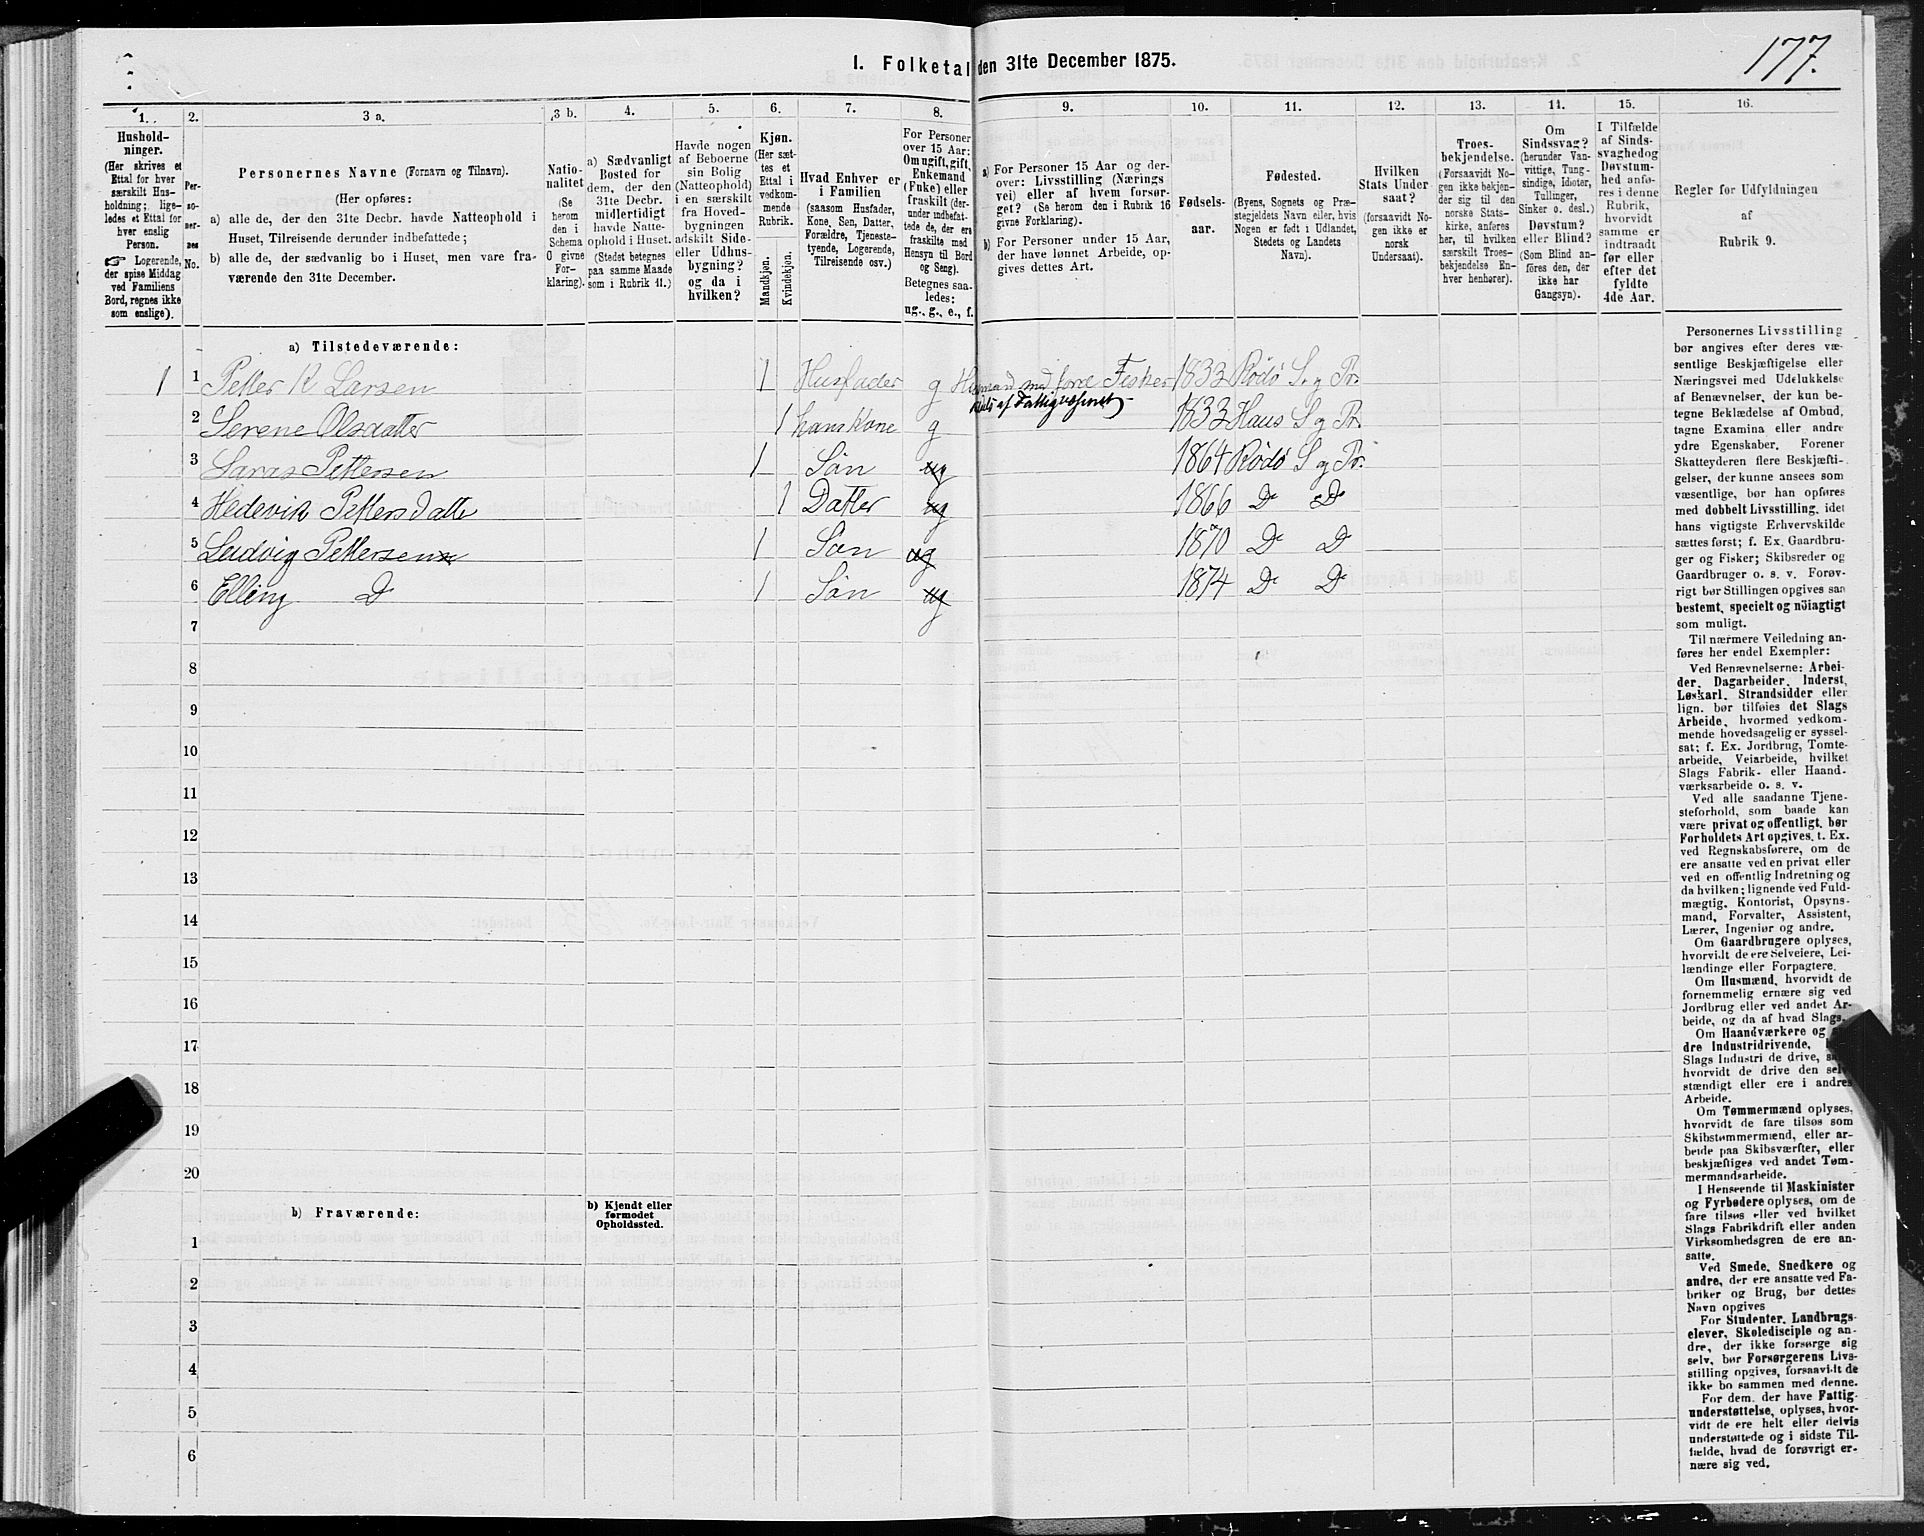 177.
I. Folketal den 31te December 1875.
1. 2. 3 a. 3 b. 4. 5. 6. 7. 8. 9. 10. 11. 12. 13. 14. 15. 16.
Hushold-
ninger.
(Her skrives et
Ettal for hver
særskilt Hus-
holdning; lige-
ledes et Ettal for
hver enslig
Person.
☞ Logerende,
der spise Middag
ved Familiens
Bord, regnes ikke
som enslige).
Per-
so-
ner-
nes
No.
Personernes Navne (Fornavn og Tilnavn).
(Her opføres:
a) alle de, der den 31te Decbr. havde Natteophold i
Huset, Tilreisende derunder indbefattede;
b) alle de, der sædvanlig bo i Huset, men vare fra-
værende den 31te December.
Natio-
nalitet
(Se
herom
den i
Schema
O givne
For-
klaring).
a) Sædvanligt
Bosted for
dem, der den
31te Decbr.
midlertidigt
havde Natte-
ophold i Huset.
(Stedet betegnes
paa samme Maade
som i Rubrik 11.)
Havde nogen
af Beboerne
sin Bolig
(Natteophold)
i en særskilt
fra Hoved-
bygningen
adskilt Side-
eller Udhus-
bygning?
og da i
hvilken?
Kjøn.
(Her sæt-
tes et
Ettal i
vedkom-
mende
Rubrik.
Mandkjøn.
Kvindekjøn.
Hvad Enhver er
i Familien
(saasom Husfader,
Kone, Søn, Datter,
Forældre, Tjeneste-
tyende, Logerende,
Tilreisende osv.)
For Personer
over 15 Aar:
Om ugift, gift,
Enkemand
(Enke) eller
fraskilt (der-
under indbefat-
tede de, der ere
fraskilte med
Hensyn til Bord
og Seng).
Betegnes saa-
ledes:
ug., g., e., f.
a) For Personer 15 Aar og der-
over: Livsstilling (Nærings
vei) eller af hvem forsør-
get? (Se herom den i Rubrik 16
givne Forklaring).
b) For Personer under 15 Aar,
der have lønnet Arbeide, op-
gives dettes Art.
Fødsels-
aar.
Fødested.
(Byens, Sognets og Præ-
stegjeldets Navn eller, hvis
Nogen er født i Udlandet,
Stedets og Landets
Navn).
Hvilken
Stats Under
saat?
(forsaavidt No-
gen ikke er
norsk
Undersaat).
Troes-
bekjendelse.
(Forsaavidt No-
gen ikke bekjen-
der sig til den
norske Stats-
kirke, anføres
her, til hvilken
særskilt Troes-
bekjendelse En-
hver henhører).
Om
Sindssvag?
(herunder Van-
vittige, Tung-
sindige, Idioter,
Tullinger,
Sinker o. desl.)
Døvstum?
eller Blind?
(Som Blind an-
føres den, der
ikke har
Gangsyn).
I Tilfælde
af Sinds-
svaghed og
Døvstum-
hed anfø-
res i denne
Rubrik,
hvorvidt
samme er
indtraadt
før eller
efter det
fyldte
4de Aar.
Regler for Udfyldningen
af
Rubrik 9.
a) Tilstedeværende:
1 1 Petter K Larsen 1 Husfader g Husmand med Jord Fisker 1833 Rödö S. og Pr.
af Fattigvæsenet
2 Serene Olsdatter 1 hans Kone g 1833 Haus S og Pr.
3 Laras Pettersen 1 Sön ug 1864 Rödö S og Pr.
4 Hedevik Pettersdatte 1 Datter ug 1866 Do Do
5 Ludvig Pettersen 1 Sön ug 1870 Do Do
6 Elling D 1 Sön ug 1874 Do Do
7
8
9
10
11
12
13
14
15
16
17
18
19
20
b) Fraværende:
b) Kjendt eller
formodet
Opholdssted.
1
2
3
4
5
6
Personernes Livsstilling
bør angives efter deres væ-
sentlige Beskjæftigelse eller
Næringsvei med Udelukkelse
af Benævnelser, der kun be-
tegne Beklædelse af Ombud,
tagne Examina eller andre
ydre Egenskaber. Forener
Skatteyderen flere Beskjæfti-
gelser, der kunne ansees som
væsentlige, bør han opføres
med dobbelt Livsstilling, idet
hans vigtigste Erhvervskilde
sættes først; f. Ex. Gaardbru-
ger og Fisker; Skibsreder og
Gaardbruger o. s. v. Forøv-
rigt bør Stillingen opgives saa
bestemt, specielt og nöiagtigt
som muligt.
Til nærmere Veiledning an-
føres her endel Exempler:
Ved Benævnelserne: Arbei-
der, Dagarbeider, Inderst,
Løskarl, Strandsidder eller
lign. bør tilføies det Slags
Arbeide, hvormed vedkom-
mende hovedsagelig er syssel-
sat; f. Ex. Jordbrug, Tomte-
arbeide, Veiarbeide, hvilket
Slags Fabrik- eller Haand-
værksarbeide o. s. v.
Ved alle saadanne Tjene-
steforhold, som baade kan
være privat og offentligt, bør
Forholdets Art opgives, t. Ex.
ved Regnskabsførere, om de
ere ansatte ved en privat eller
ved en offentlig Indretning og
da hvilken; lignende ved Fuld-
mægtig, Kontorist, Opsyns-
mand, Forvalter, Assistent,
Lærer, Ingeniør og andre.
Om Gaardbrugere oplyses,
hvorvidt de ere Selveiere, Lei-
lændinge eller Forpagtere.
Om Husmænd, hvorvidt de
fornemmelig ernære sig ved
Jordbrug eller ved andet Ar-
beide, og da af hvad Slags.
Om Haandværkere og
dre Industridrivende,
Slags Industri de drive,
hvorvidt de drive den selv-
stændigt eller ere i andres
Arbeide.
Om Tømmermænd oplyses,
hvorvidt de fare tilsøs som
Skibstømmermænd, eller ar-
beide paa Skibsværfter, eller
beskjæftiges ved andet Tøm-
mermandsarbeide.
I Henseende til Maskinister
og Fyrbødere oplyses, om de
fare tilsøs eller ved hvilket
Slags Fabrikdrift eller anden
Virksomhedsgren de ere an-
satte.
Ved Smede, Snedkere og
andre, der ere ansatte ved Fa-
briker og Brug, bør dettes
Navn opgives
For Studenter, Landbrugs-
elever, Skoledisciple og an-
dre, der ikke forsørge sig
selv, bør Forsørgerens Livs-
stilling opgives, forsaavidt de
ikke bo sammen med denne.
For dem, der have Fattig-
understøttelse, oplyses, hvor-
vidt de ere helt eller delvis
understøttede og i sidste Til-
fælde, hvad de forøvrigt er-
nære sig ved.